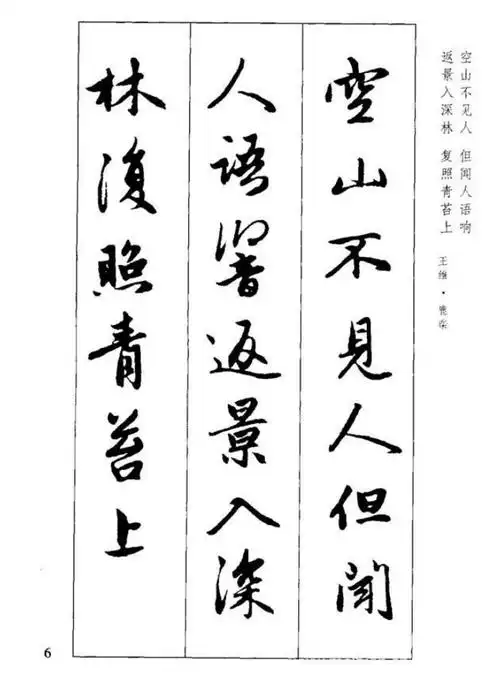 空山不見人但聞
人語響返景入深
林復照青苔上
空山不见人 但闻人语响
返景入深林 复照青苔上
王维·鹿柴
6